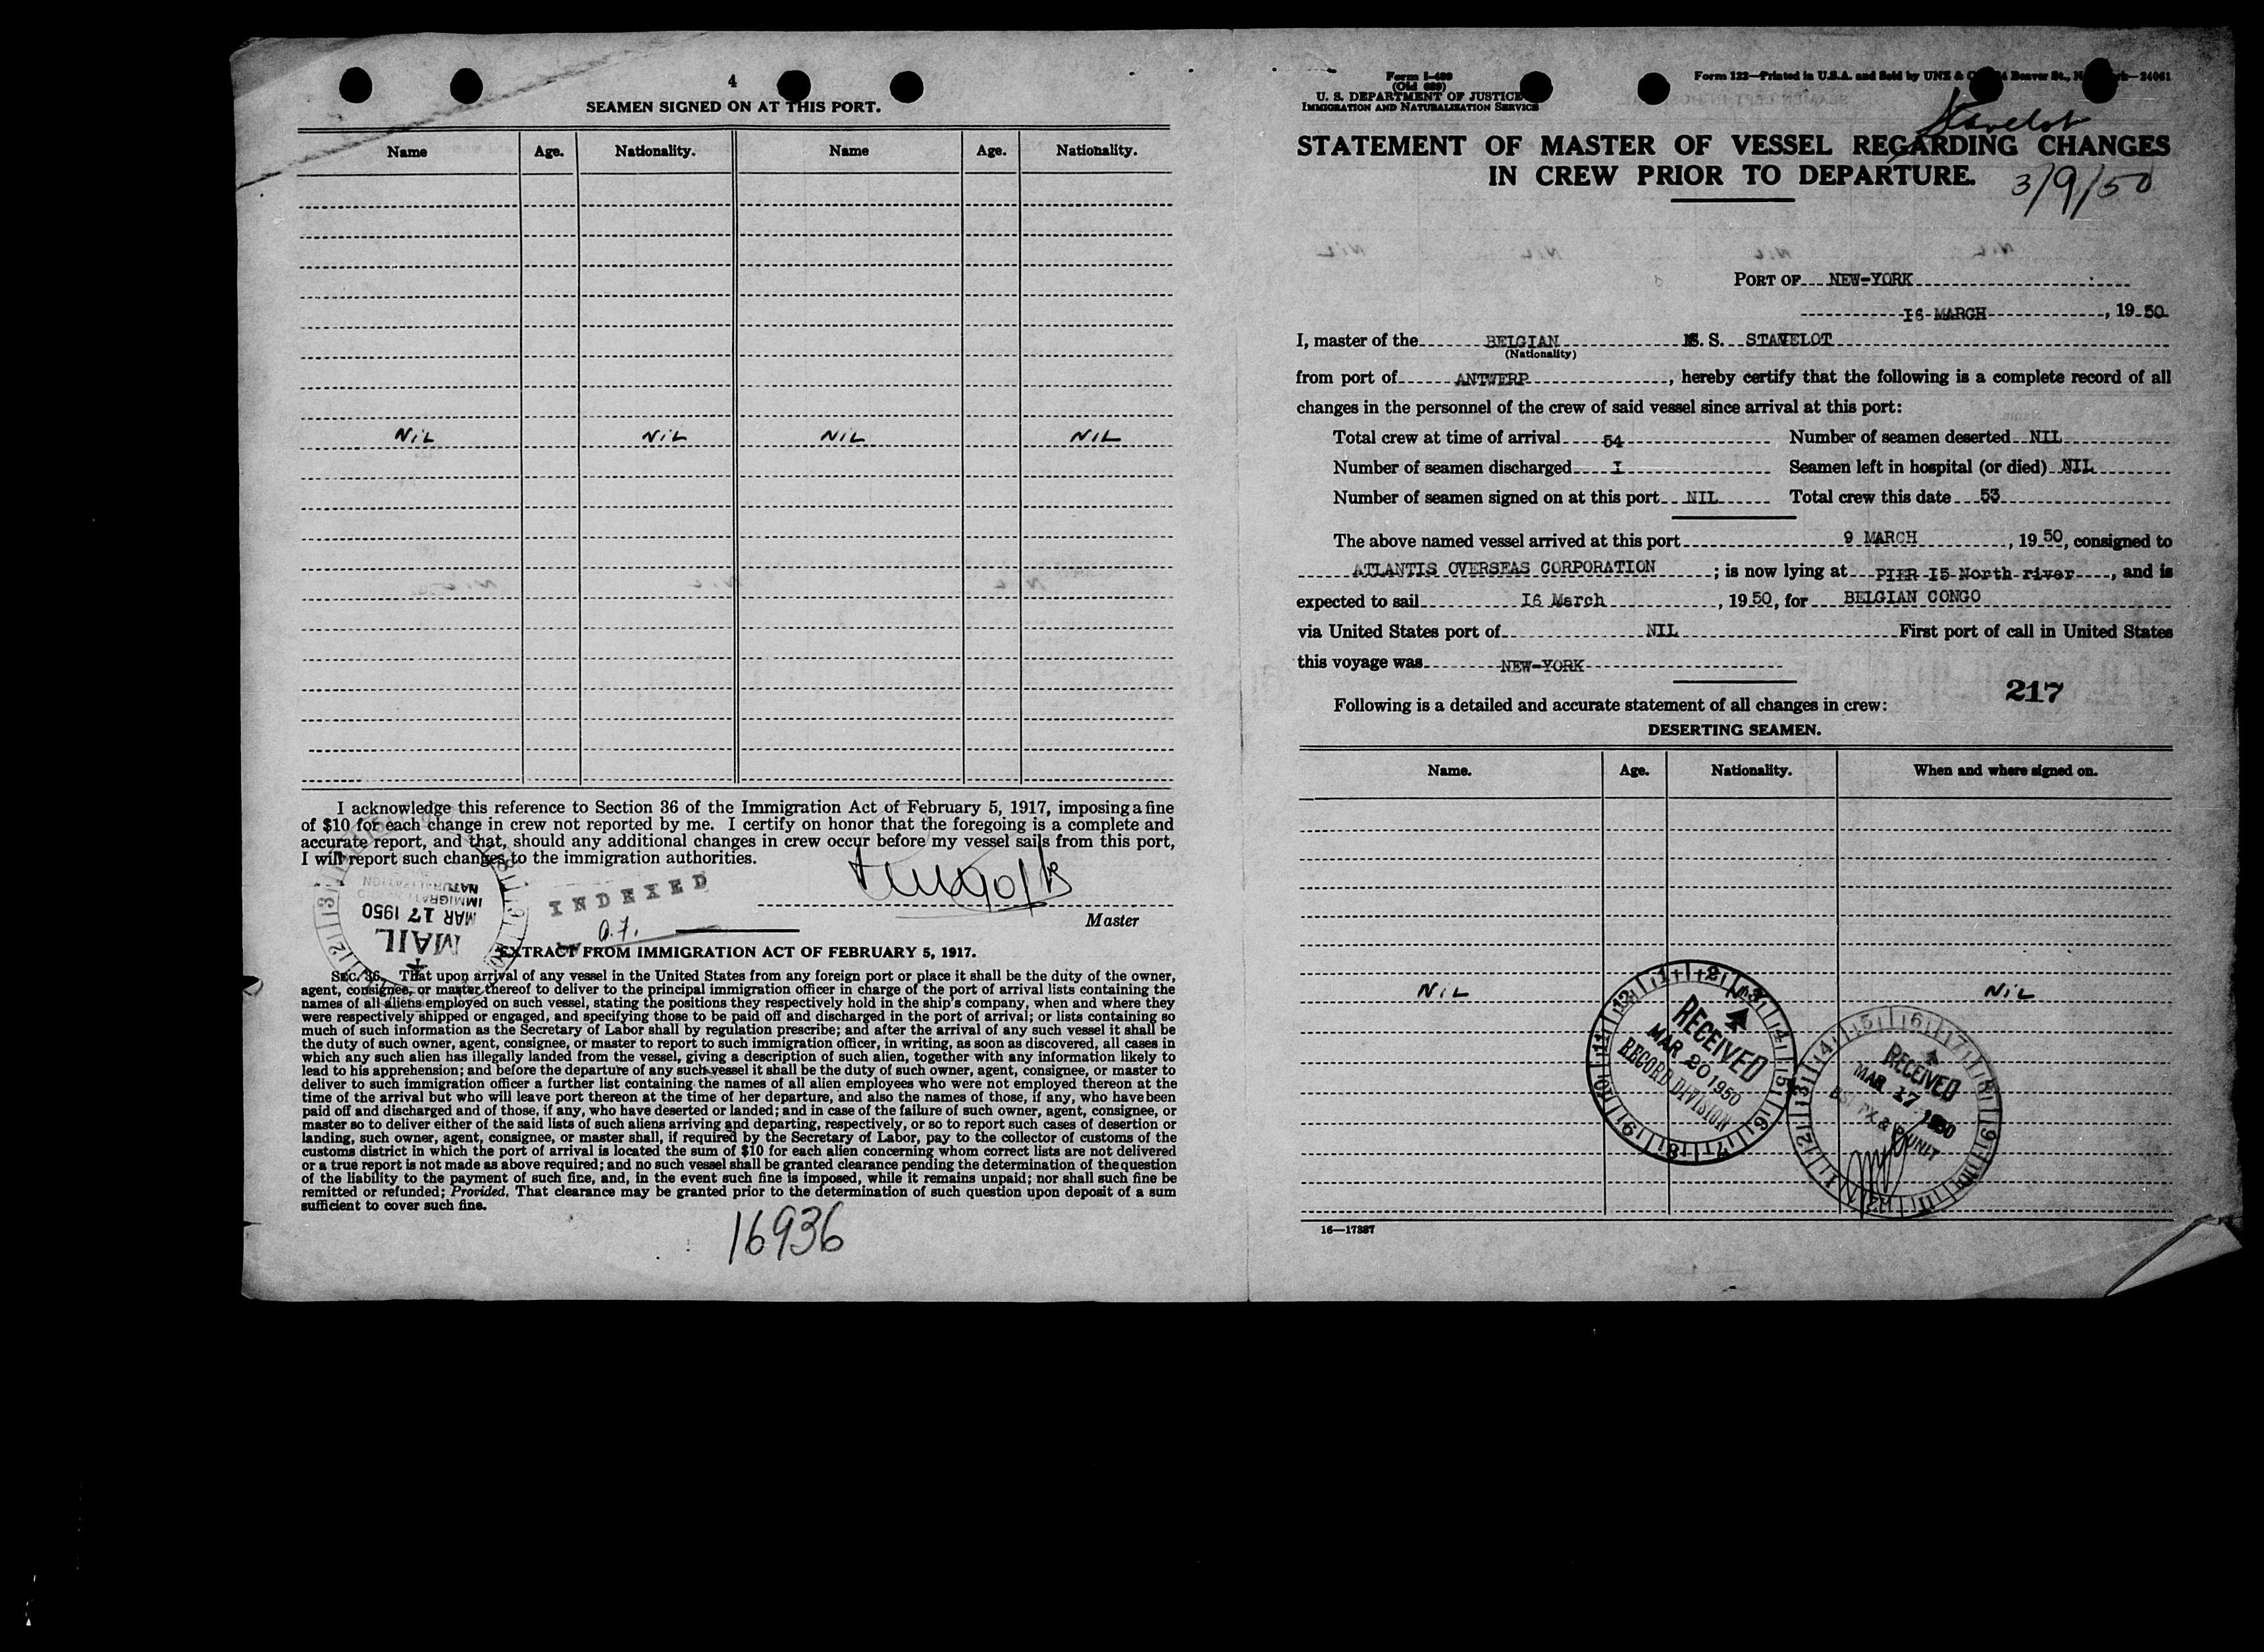 4
SEAMEN SIGNED ON AT THIS PORT.
Name Age. Nationality. Name Age. Nationality.
NiL NiL NiL NiL
I acknowledge this reference to Section 36 of the Immigration Act of February 5, 1917, imposing a fine
of $10 for each change in crew not reported by me. I certify on honor that the foregoing is a complete and
accurate report, and that, should any additional changes in crew occur before my vessel sails from this port,
I will report such changes to the immigration authorities.
MAIL
MAR 17 1950
INDEXED
Master
EXTRACT FROM IMMIGRATION ACT OF FEBRUARY 5, 1917.
SEC. 36. That upon arrival of any vessel in the United States from any foreign port or place it shall be the duty of the owner,
agent, consignee, or master thereof to deliver to the principal immigration officer in charge of the port of arrival lists containing the
names of all aliens employed on such vessel, stating the positions they respectively hold in the ship's company, when and where they
were respectively shipped or engaged, and specifying those to be paid off and discharged in the port of arrival; or lists containing so
much of such information as the Secretary of Labor shall by regulation prescribe; and after the arrival of any such vessel it shall be
the duty of such owner, agent, consignee, or master to report to such immigration officer, in writing, as soon as discovered, all cases in
which any such alien has illegally landed from the vessel, giving a description of such alien, together with any information likely to
lead to his apprehension; and before the departure of any such vessel it shall be the duty of such owner, agent, consignee, or master to
deliver to such immigration officer a further list containing the names of all alien employees who were not employed thereon at the
time of the arrival but who will leave port thereon at the time of her departure, and also the names of those, if any, who have been
paid off and discharged and of those, if any, who have deserted or landed; and in case of the failure of such owner, agent, consignee, or
master so to deliver either of the said lists of such aliens arriving and departing, respectively, or so to report such cases of desertion or
landing, such owner, agent, consignee, or master shall, if required by the Secretary of Labor, pay to the collector of customs of the
customs district in which the port of arrival is located the sum of $10 for each alien concerning whom correct lists are not delivered
or a true report is not made as above required; and no such vessel shall be granted clearance pending the determination of the question
of the liability to the payment of such fine, and, in the event such fine is imposed, while it remains unpaid; nor shall such fine be
remitted or refunded; Provided, That clearance may be granted prior to the determination of such question upon deposit of a sum
sufficient to cover such fine.
16936
Form I-489
(Old 689)
U. S. DEPARTMENT OF JUSTICE
IMMIGRATION AND NATURALIZATION SERVICE
Form 122—Printed in U.S.A. and Sold by UNZ & Beaver St., —24061
Stavelot
STATEMENT OF MASTER OF VESSEL REGARDING CHANGES
IN CREW PRIOR TO DEPARTURE.
3/9/50
PORT OF NEW-YORK
I6 MARCH, 19 50
I, master of the BELGIAN S. S. STAVELOT
(Nationality)
from port of ANTWERP, hereby certify that the following is a complete record of all
changes in the personnel of the crew of said vessel since arrival at this port:
Total crew at time of arrival 54 Number of seamen deserted NIL
Number of seamen discharged I Seamen left in hospital (or died) NIL
Number of seamen signed on at this port NIL Total crew this date 53
The above named vessel arrived at this port 9 MARCH, 19 50, consigned to
ATLANTIS OVERSEAS CORPORATION; is now lying at PIER I5 North river, and is
expected to sail I6 March, 19 50, for BELGIAN CONGO
via United States port of NIL First port of call in United States
this voyage was NEW-YORK
217
Following is a detailed and accurate statement of all changes in crew:
DESERTING SEAMEN.
Name. Age. Nationality. When and where signed on.
NiL NiL
RECEIVED
MAR 20 1950
RECORD DIVISION
RECEIVED
MAR 17 1950
16—17387